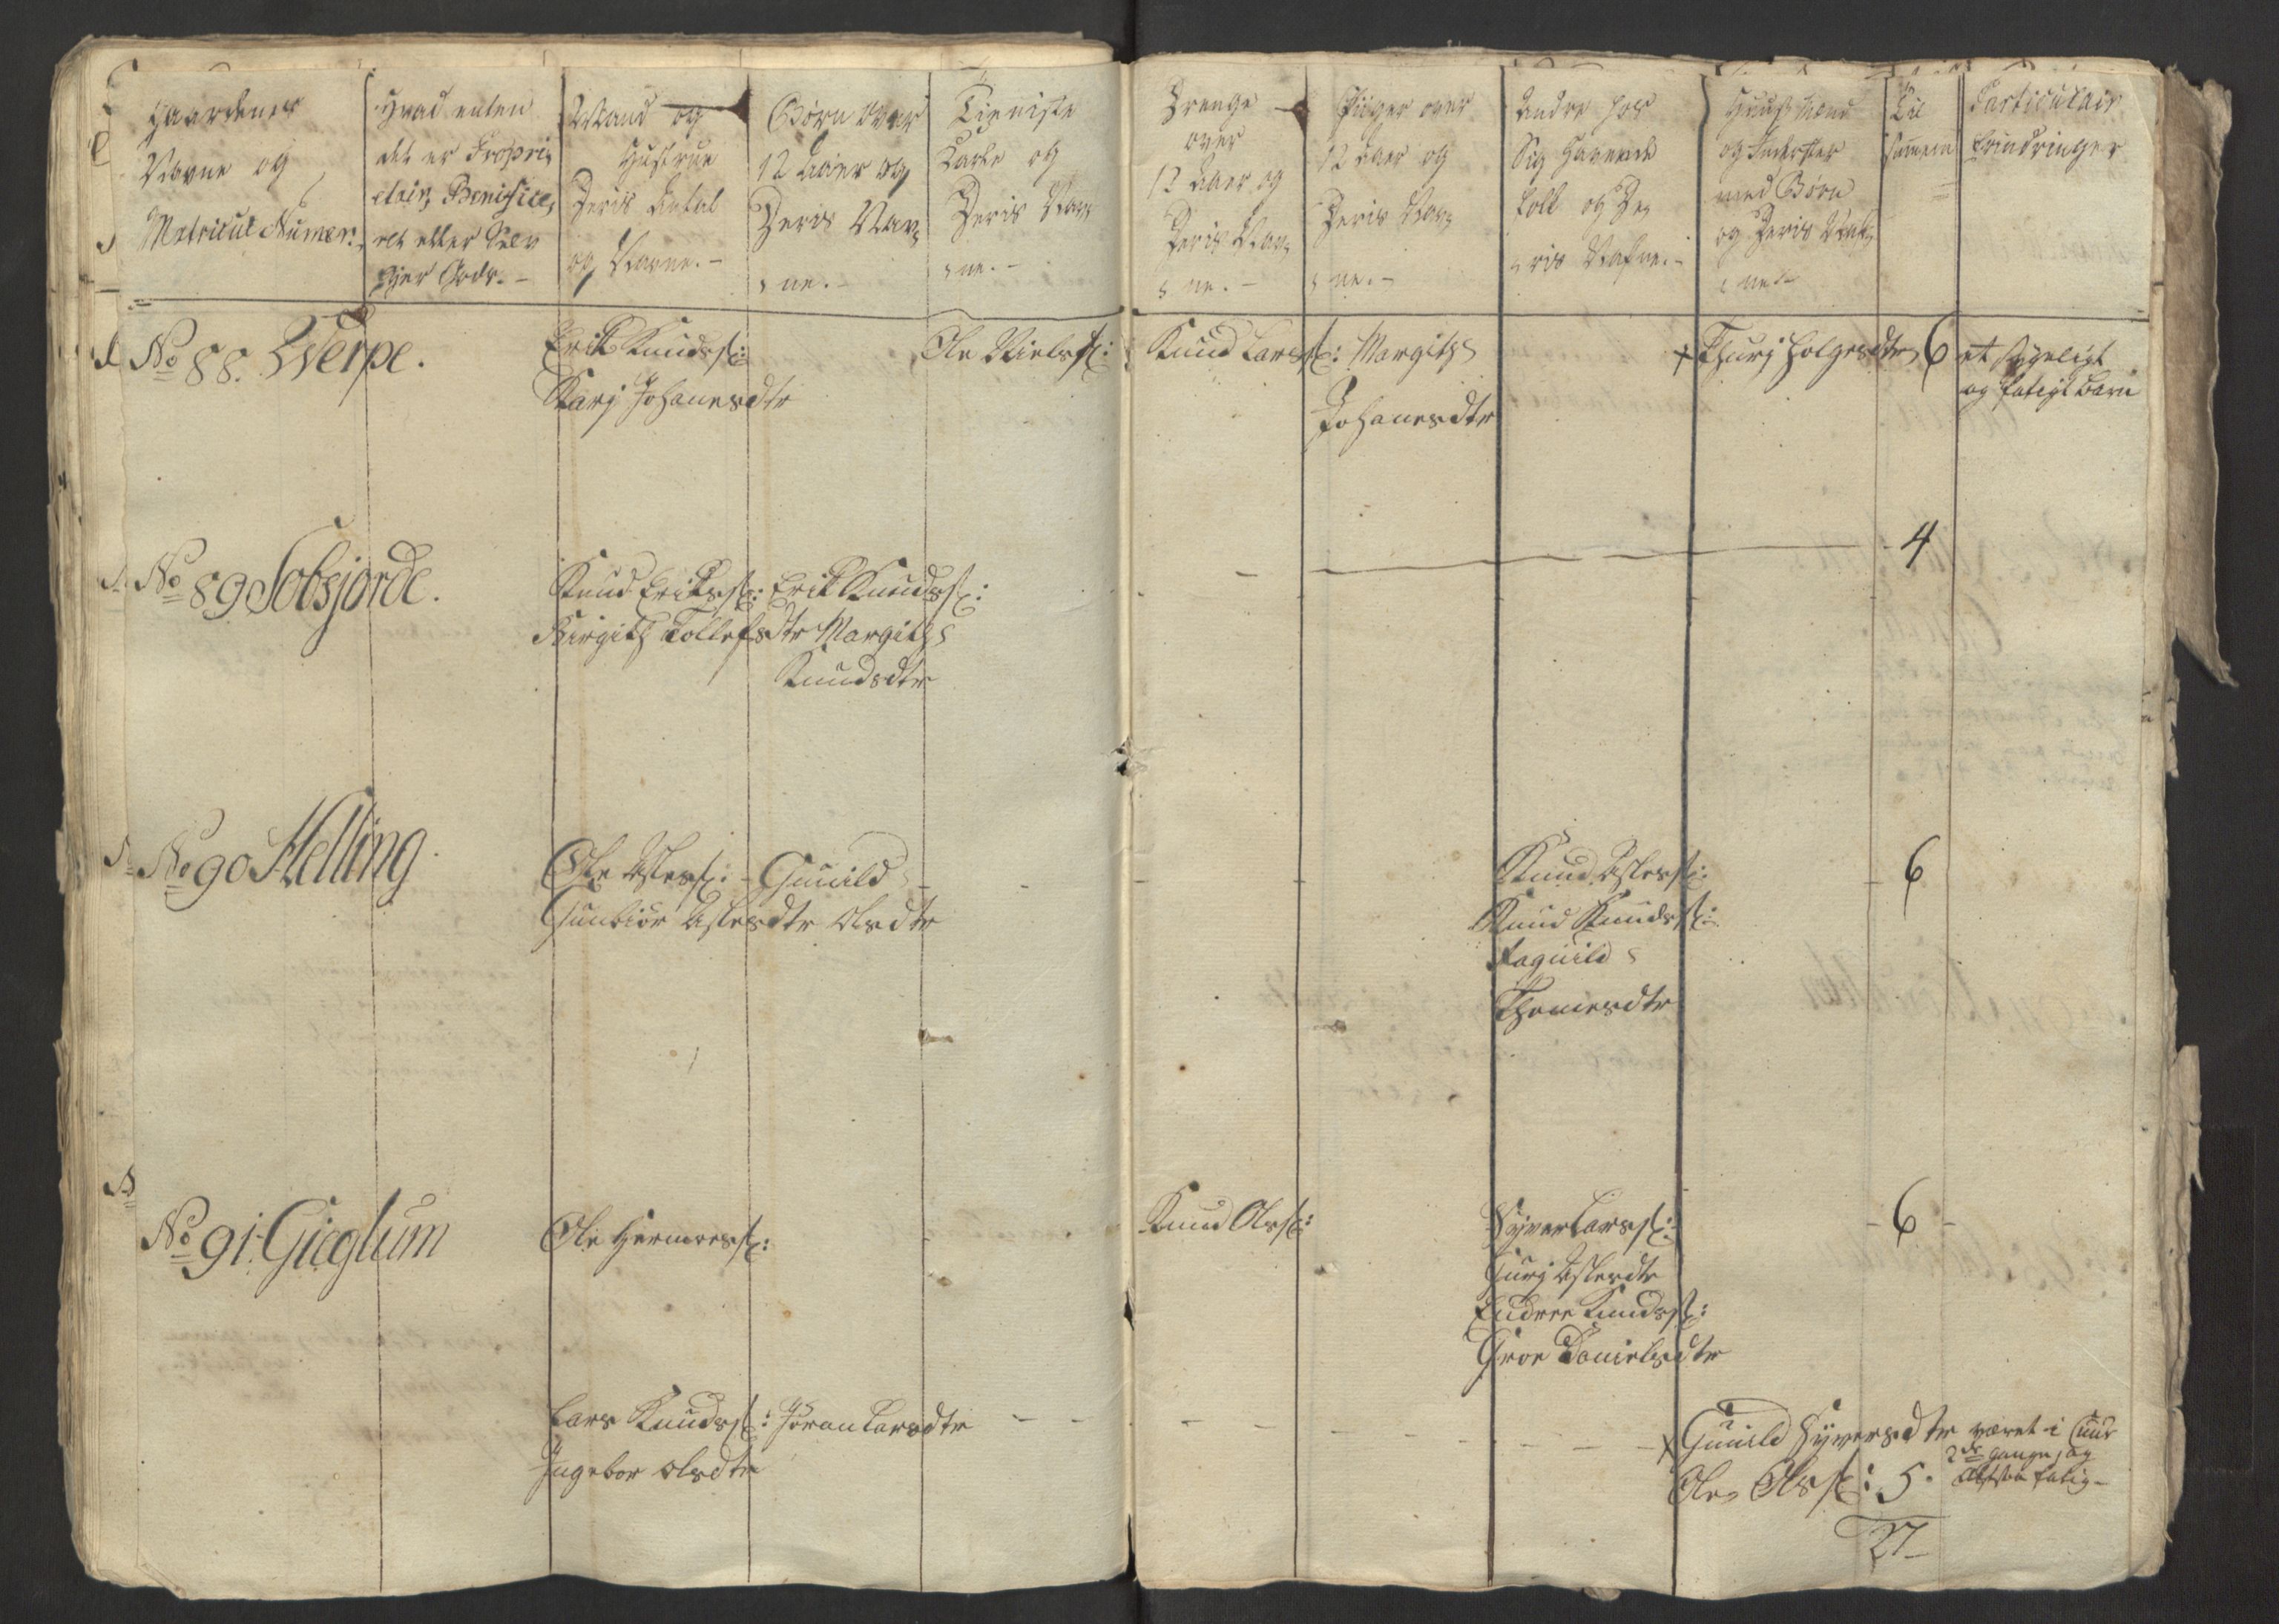 Gaardenes
Navne og
Matricul Numer.
Hvad enten
det er Propri-
etair, Benifice-
ret eller
Gods.-
Mand og
Hustrue
Deris Antal
og Navne.-
Børn over
12 Aaer og
Deris Nav-
ne.-
Tieniste
Karle og
Deris Nav-
ne.-
Drenge
over
12 Aaer og
Deris Nav-
ne.-
Piiger over
12 Aaer og
Deris Nav-
ne.-
Andre hos
Sig havende
Folk og De-
ris Nafne.-
Huus Mænd
og Inderster
med Børn
og Deris Naf-
ne
Til
sammen
Particulair
Erindringer
No 88. Werpe.
Erik Knuds:
Kari Johanesdtr
Ole Niels:
Knud Lars:
Margith
Johanesdtr
+ Thurj Holgersdtr
6
et sygeligt
og fatigt barn
No 89 Sobsjorde.
Knud Eriks:
Birgith Tollefsdtr
Erik Knuds:
Margith
Knudsdtr
4
No 90 Helling.
Ole Asles:
Gunbiør Aslesdtr
Gunild
Olsdtr
Knud Asles:
Knud Knuds:
Raguild
Thomesdtr
6
No 91. Gieglum
Ole Hermoes:
Knud Ols:
Syver Lars:
Gurj Aslesdtr
Endree Knuds:
Groe Danielsdtr
6
Lars Knuds:
Ingebor Olsdtr
Jøran Larsdtr
+ Gunild Syversdtr
Ole Ols:
5.
været i Cuur
2de gange, og
fatig-
27